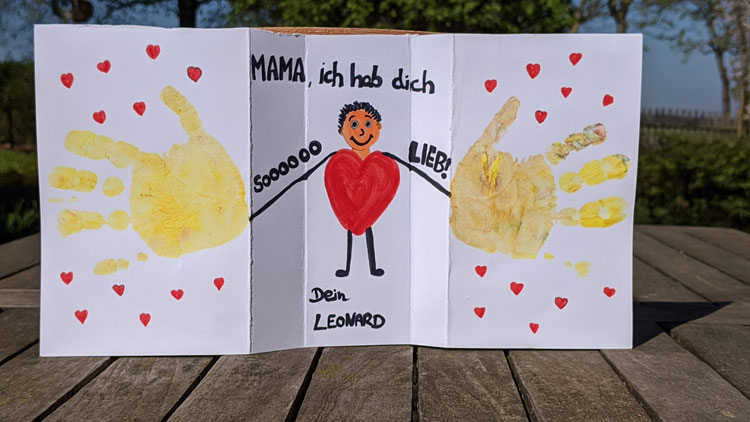 MAMA, ich hab dich
SOOOOOO
LIEB!
Dein
LEONARD